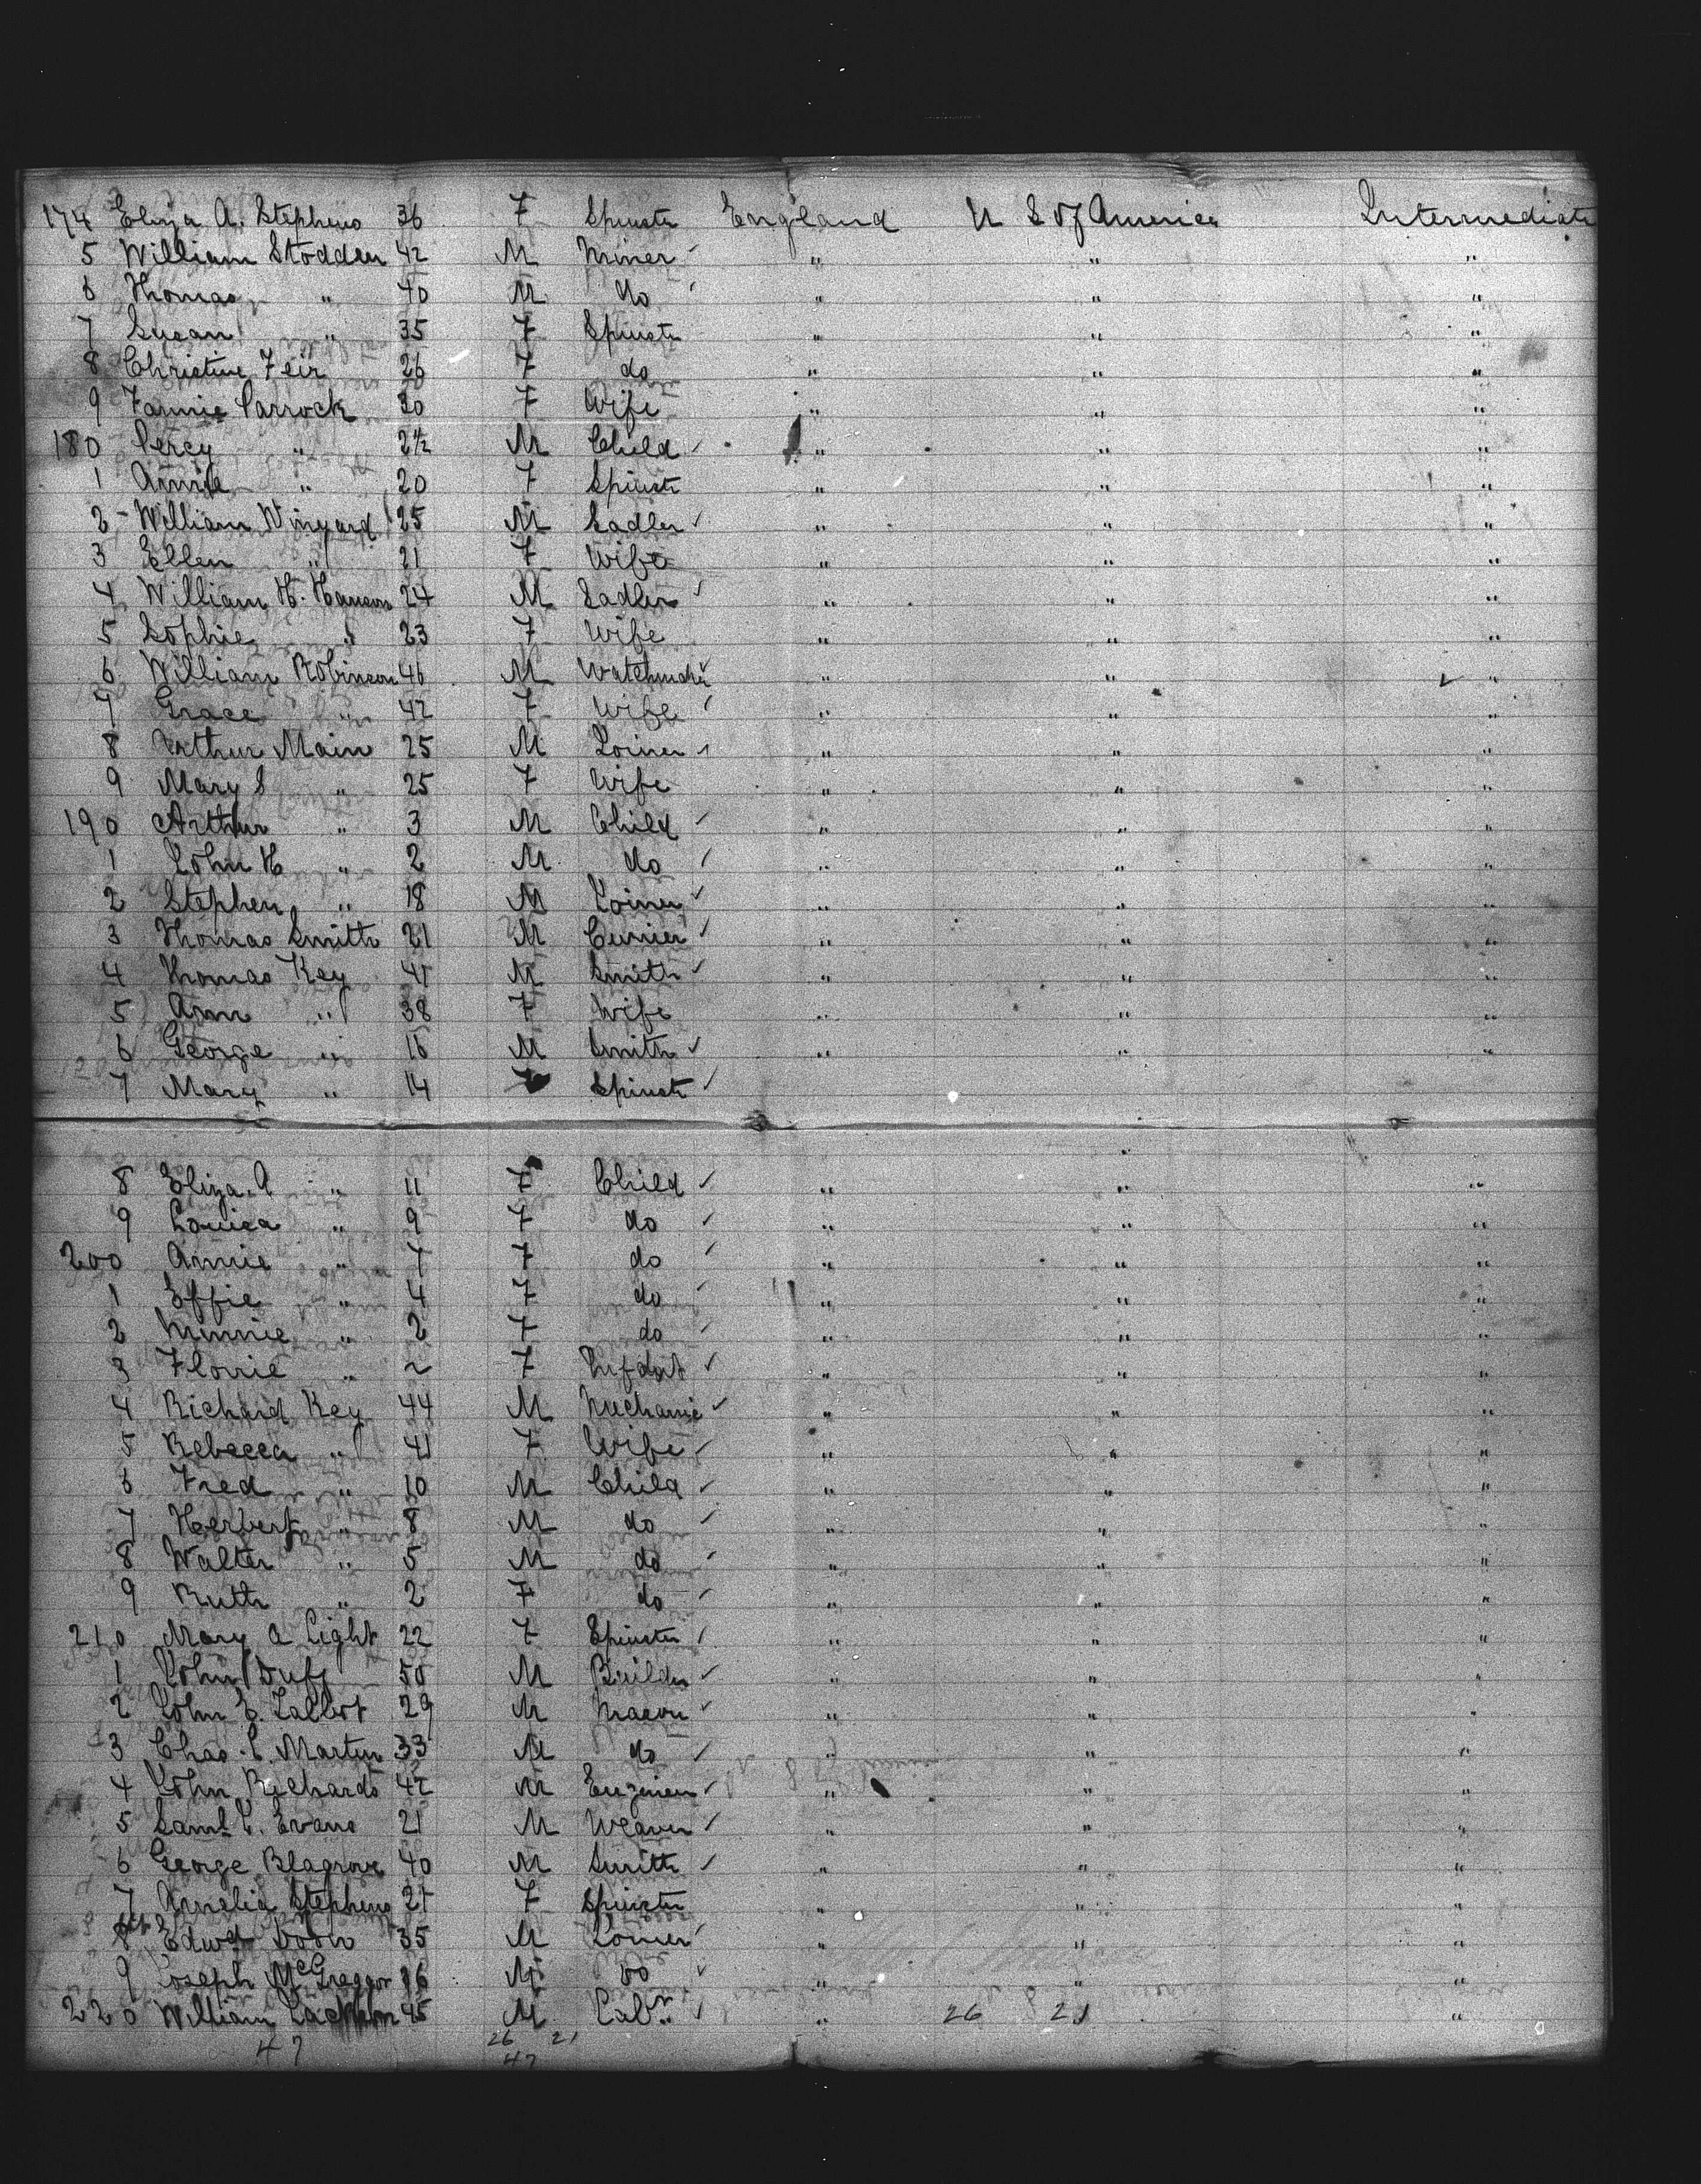 174 Eliza A. Stephens 36 F Spinstr England U S of America Intermediate
5 William Stodden 42 M Miner " " "
6 Thomas " 40 M do " " "
7 Susan " 35 F Spinstr " " "
8 Christine Feir 26 F do " " "
9 Fannie Parrock 30 F Wife " " "
180 Percy " 2½ M Child " " "
1 Annie " 20 F Spinstr " " "
2 William Winyard 25 M Sadler " " "
3 Ellen " 21 F Wife " " "
4 William H. Hanson 24 M Sadler " " "
5 Sophie " 23 F Wife " " "
6 William Robinson 46 M Watchmakr " " "
7 Grace " 42 F Wife " " "
8 Arthur Main 25 M Joiner " " "
9 Mary S " 25 F Wife " " "
190 Arthur " 3 M Child " " "
1 John H " 2 M do " " "
2 Stephen " 18 M Joiner " " "
3 Thomas Smith 21 M Currier " " "
4 Thomas Key 41 M Smith " " "
5 Ann " 38 F Wife " " "
6 George " 16 M Smith " " "
7 Mary " 14 F Spinstr
8 Eliza A " 11 F Child " " "
9 Louisa " 9 F do " " "
200 Annie " 7 F do " " "
1 Effie " 4 F do " " "
2 Minnie " 2 F do " " "
3 Florrie " F Infant " " "
4 Richard Key 44 M Mechanic " " "
5 Rebecca " 41 F Wife " " "
6 Fred " 10 M Child " " "
7 Herbert " 8 M do " " "
8 Walter " 5 M do " " "
9 Ruth " 2 F do " " "
210 Mary A Light 22 F Spinster " " "
1 John Duff 50 M Builder " " "
2 John E. Talbot 29 M Mason " " "
3 Chas. P. Martin 33 M do " " "
4 John Richards 42 M Engineer " " "
5 Saml. T. Evans 21 M Weaver " " "
6 George Blagrove 40 M Smith " " "
7 Amelia Stephens 21 F Spinster " " "
8 Edwd 35 M Joiner " " "
9 Joseph McGreggor 16 M do " " "
220 William 45 M Labr. " 26 21 "
47 26 21
47